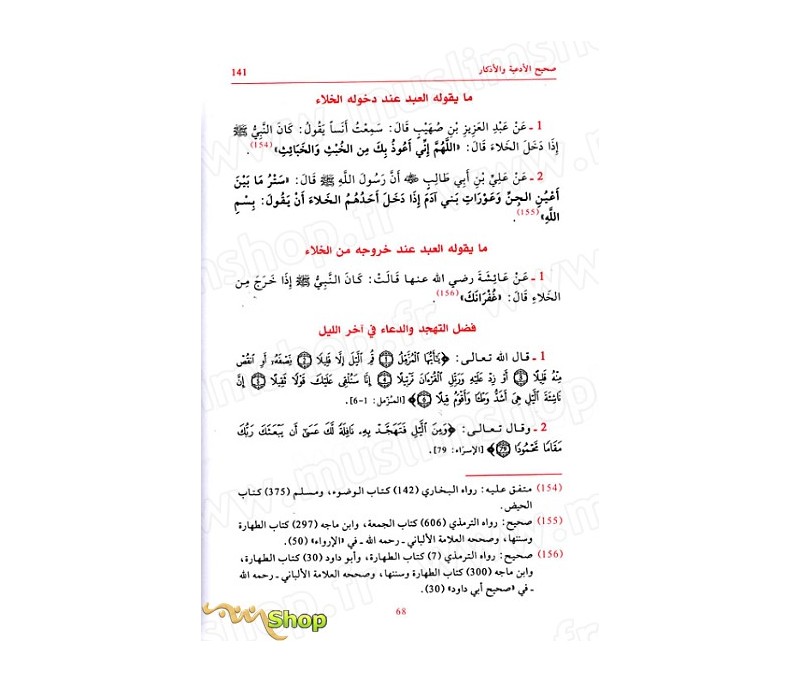 صحيح الأدعية والأذكار 141
ما يقوله العبد عند دخوله الخلاء
1 ـ عَنْ عَبْدِ العَزِيزِ بْنِ صُهَيْبٍ قَالَ: سَمِعْتُ أَنَساً يَقُولُ: كَانَ النَّبِيُّ ﷺ
إِذَا دَخَلَ الخَلاءَ قَالَ: «اللَّهُمَّ إِنِّي أَعُوذُ بِكَ مِن الخُبْثِ وَالخَبَائِثِ»(154).
2 ـ عَن عَلِيِّ بْنِ أَبِي طَالِبٍ رضي الله عنه أَنَّ رَسُولَ اللَّهِ ﷺ قَالَ: «سَتْرُ مَا بَيْنَ
أَعْيُنِ الجِنِّ وَعَوْرَاتِ بَنِي آدَمَ إِذَا دَخَلَ أَحَدُهُمُ الخَلاءَ أَنْ يَقُولَ: بِسْمِ
اللَّهِ»(155).
ما يقوله العبد عند خروجه من الخلاء
1 ـ عَنْ عَائِشَةَ رضي الله عنها قَالَتْ: كَانَ النَّبِيُّ ﷺ إِذَا خَرَجَ مِن
الخَلاءِ قَالَ: «غُفْرَانَكَ»(156).
فضل التهجد والدعاء في آخر الليل
1 ـ قال الله تعالى: ﴿يَٰٓأَيُّهَا ٱلْمُزَّمِّلُ ۝1 قُمِ ٱلَّيْلَ إِلَّا قَلِيلًا ۝2 نِّصْفَهُۥٓ أَوِ ٱنقُصْ
مِنْهُ قَلِيلًا ۝3 أَوْ زِدْ عَلَيْهِ وَرَتِّلِ ٱلْقُرْءَانَ تَرْتِيلًا ۝4 إِنَّا سَنُلْقِى عَلَيْكَ قَوْلًا ثَقِيلًا ۝5 إِنَّ
نَاشِئَةَ ٱلَّيْلِ هِىَ أَشَدُّ وَطْـًٔا وَأَقْوَمُ قِيلًا ۝6﴾ [المزمل: 1-6].
2 ـ وقال تعالى: ﴿وَمِنَ ٱلَّيْلِ فَتَهَجَّدْ بِهِۦ نَافِلَةً لَّكَ عَسَىٰٓ أَن يَبْعَثَكَ رَبُّكَ
مَقَامًا مَّحْمُودًا ۝79﴾ [الإسراء: 79].
(154) متفق عليه: رواه البخاري (142) كتاب الوضوء، ومسلم (375) كتاب
الحيض.
(155) صحيح: رواه الترمذي (606) كتاب الجمعة، وابن ماجه (297) كتاب الطهارة
وسننها، وصححه العلامة الألباني ـ رحمه الله ـ في «الإرواء» (50).
(156) صحيح: رواه الترمذي (7) كتاب الطهارة، وأبو داود (30) كتاب الطهارة،
وابن ماجه (300) كتاب الطهارة وسننها، وصححه العلامة الألباني ـ رحمه الله
ـ في «صحيح أبي داود» (30).
68
Shop
www.muslimshop.fr